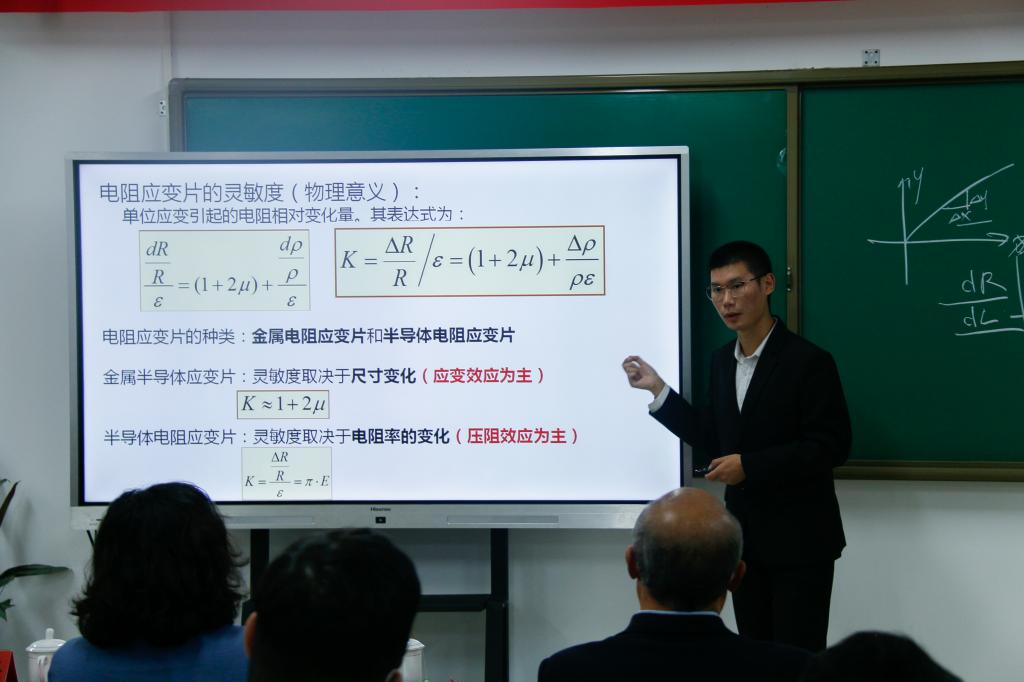 电阻应变片的灵敏度（物理意义）：
单位应变引起的电阻相对变化量。其表达式为：
dR/R / ε = (1+2μ) + dρ/ρ / ε
K = ΔR/R / ε = (1+2μ) + Δρ/ρε
电阻应变片的种类：金属电阻应变片和半导体电阻应变片
金属半导体应变片：灵敏度取决于尺寸变化（应变效应为主）
K ≈ 1+2μ
半导体电阻应变片：灵敏度取决于电阻率的变化（压阻效应为主）
K = ΔR/R / ε = π·E
Hisense
y
Δy
Δx
dR
dL